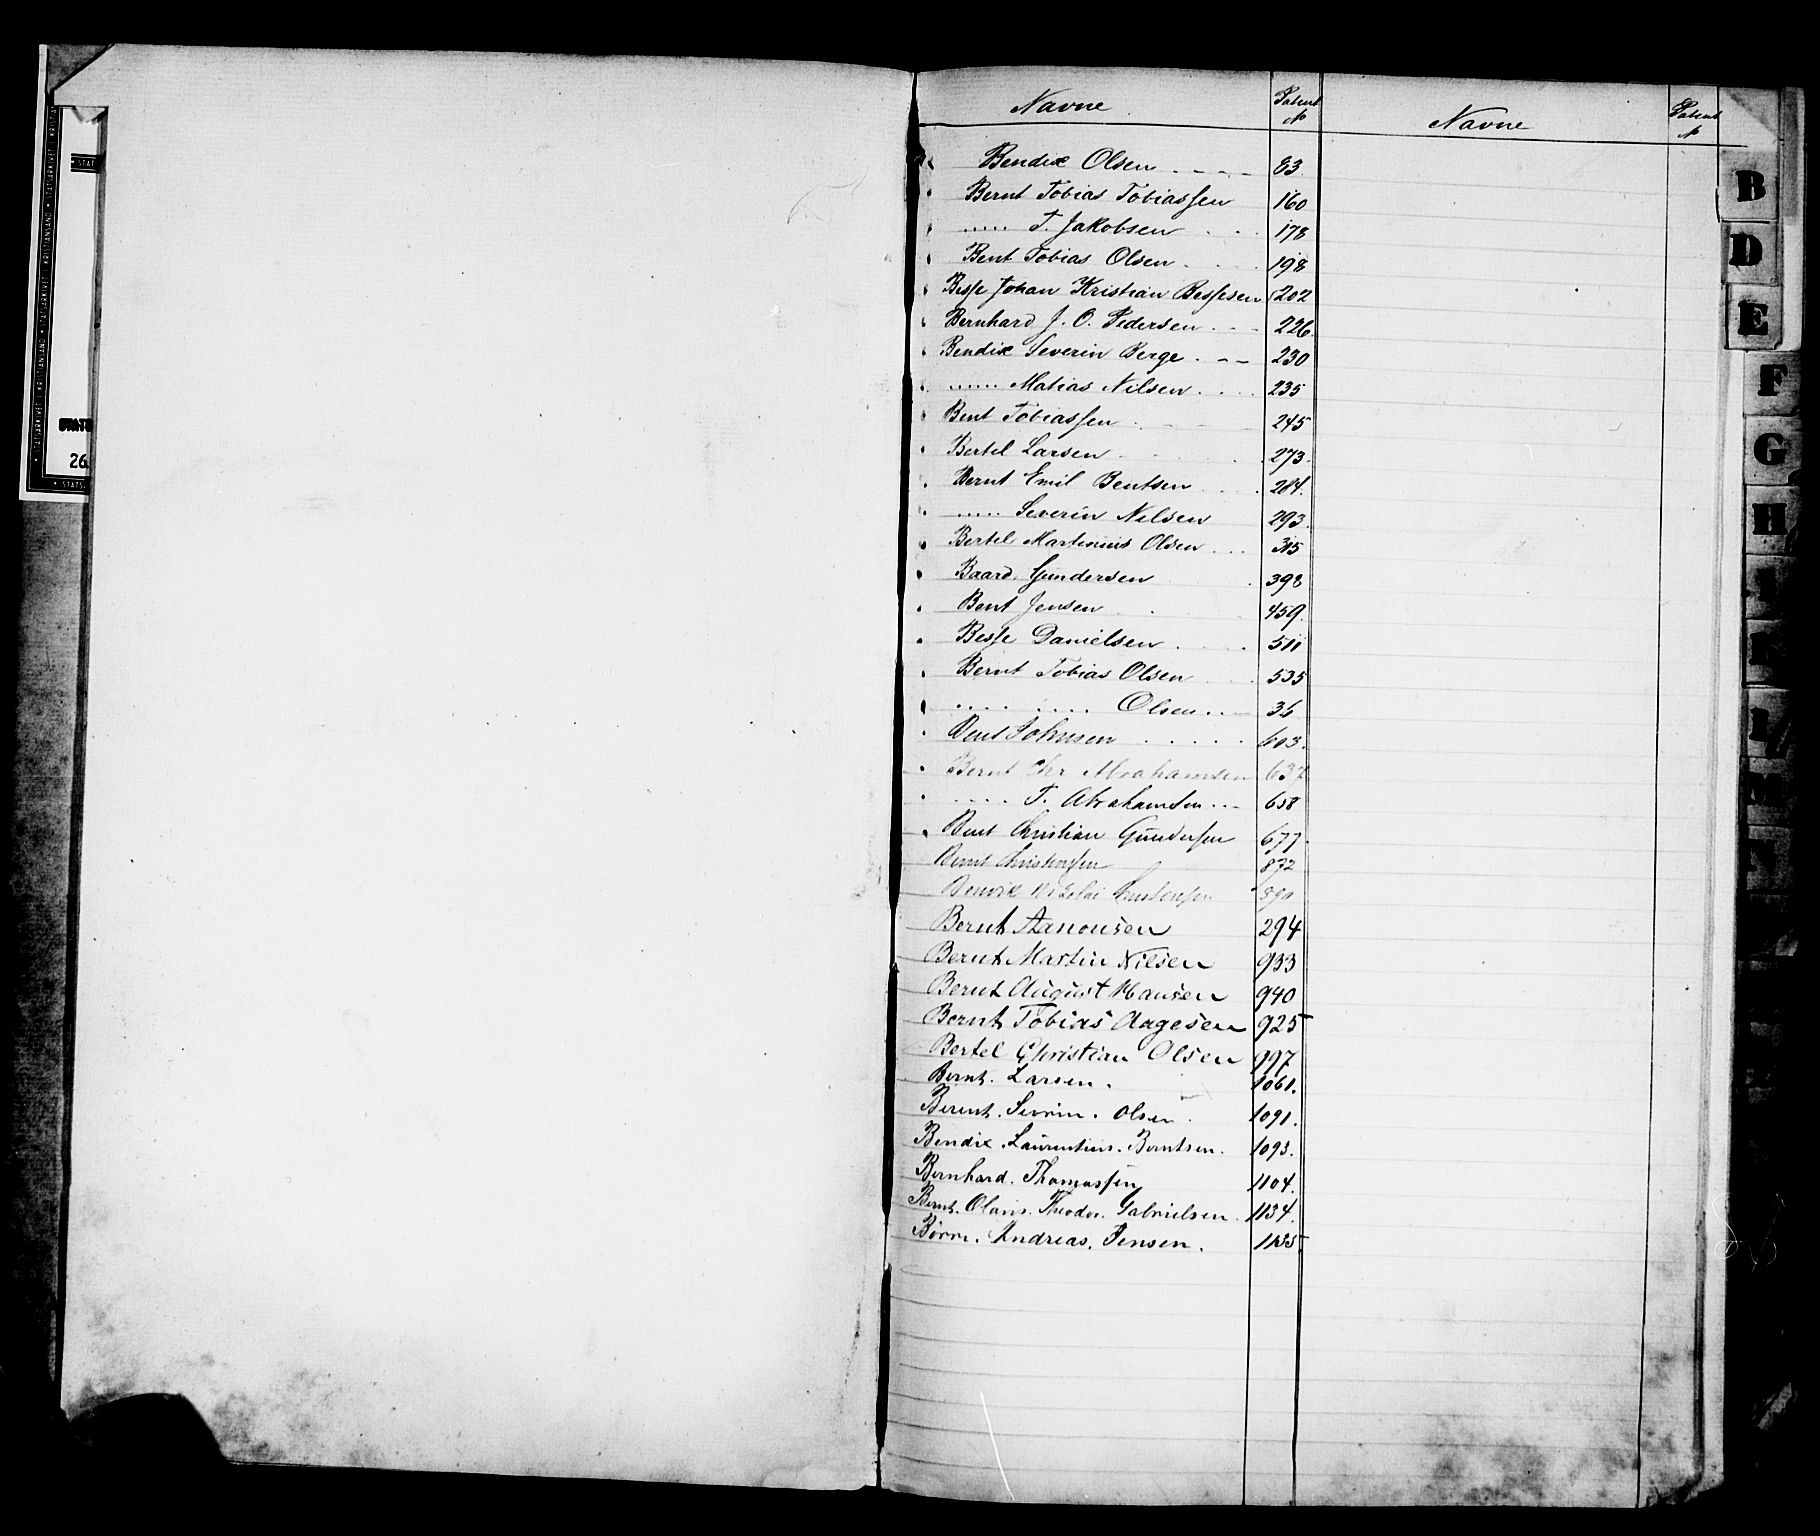 Navne Patent №
Navne Patent №
Bendix Olsen 83.
Bernt Tobias Tobiassen 160
..... T. Jakobsen 178
Bent Tobias Olsen 198
Besse Johan Kristian Bessesen 202
Bernhard J. O. Pedersen 226.
Bendix Severin Berge 230
...... Matias Nilsen 235
Bent Tobiassen 245
Bertel Larsen 273.
Bernt Emil Bentsen 284.
..... Severin Nilsen 293.
Bertel Martinius Olsen 315
Baard Gundersen 398
Bent Jensen 459.
Besse Danielsen 511
Bernt Tobias Olsen 535
.... .... Olsen 36
Bent Johnsen 603.
Bernt Chr Abrahamsen 637
.... T. Abrahamsen 658
Bent Christian Gundersen 677.
Bernt Christensen 872
Bendix Nikolai
Bernt Aanonsen 294
Bernt Martin Nilsen 933
Bernt August Hansen 940
Bernt Tobias Aagesen 925
Bertel Christian Olsen 997
Bernt. Larsen. 1061.
Berent. Sevrin. Olsen. 1091.
Bendix. Laurentius. Berntsen. 1093.
Bernhard. Thomassen 1104.
Bernt. Olaus. Theodor. Gabrielsen. 1134.
Børre. Andreas. Jensen. 1135
B
D
E
F
G
H
STATSARKIVET I KRISTIANSAND
STATS
26.